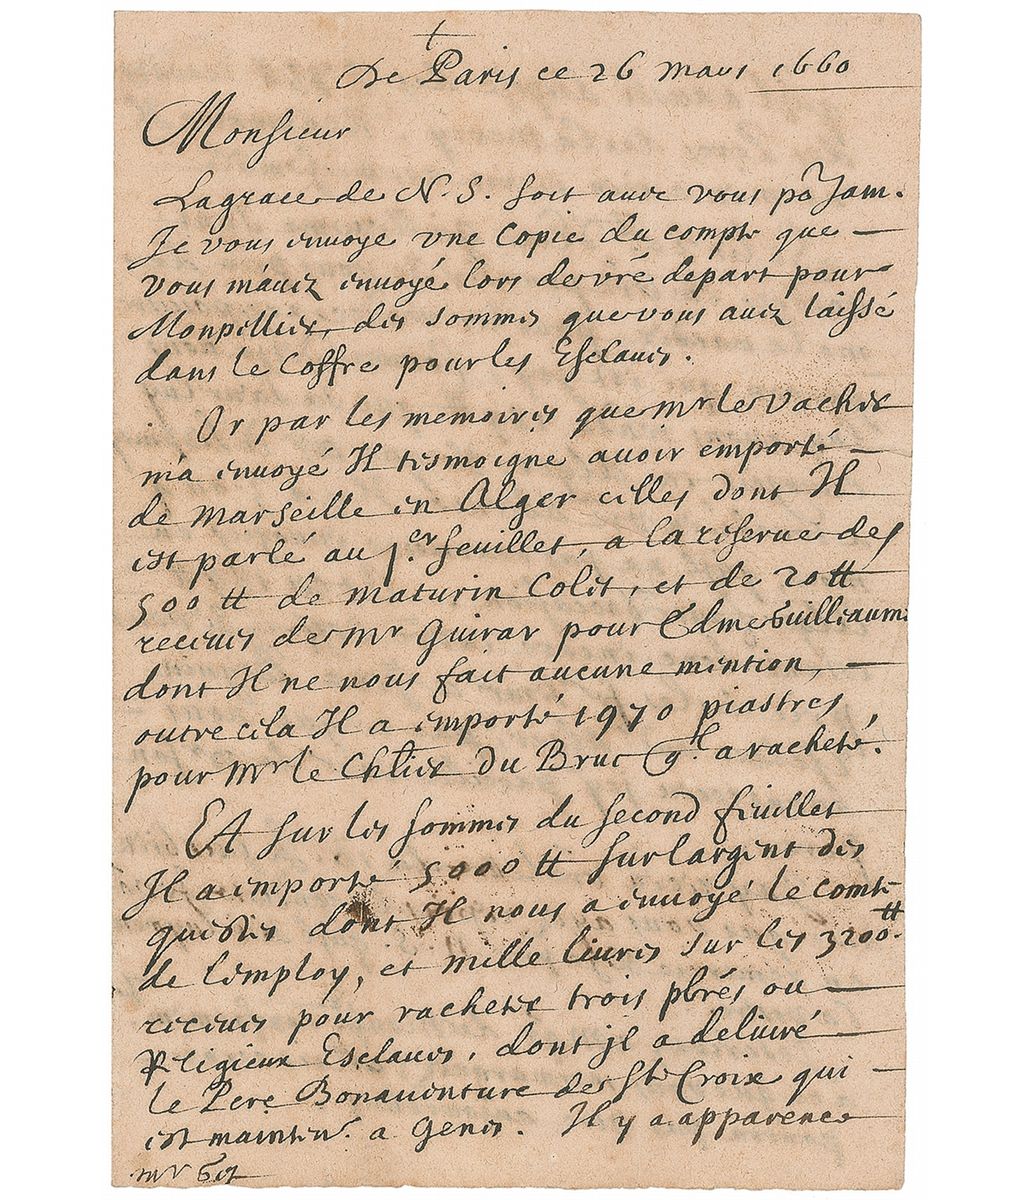 De Paris ce 26 mars 1660
Monsieur
La grace de N. S. soit avec vous pō Jam.
Je vous envoye une Copie du compte que
vous m'aviez envoyé lors de vrē depart pour
Monpellier, des sommes que vous avez laissé
dans le Coffre pour les Esclaves.
Or par les memoires que mr le vacher
m'a envoyé Il tesmoigne avoir emporté
de Marseille en Alger celles dont Il
est parlé au 1.er feuillet, a la reserve des
500 tt de maturin Colet, et de 20 tt
receues de Mr Guirar pour Edme Guilleaume
dont Il ne nous fait aucune mention,
outre cela Il a emporté 1970 piastres
pour Mr le Chlier du Bruc ql a racheté.
Et sur les sommes du second feuillet
Il a emporté 5000 tt sur largent des
questes dont Il nous a envoyé le comte
de lemploy, et mille livres sur les 3200tt.
receues pour racheter trois pbrēs ou
Religieux Esclaves, dont jl a delivré
le Pere Bonaventure de Ste Croix qui
est mainten.t a Genes. Il y a apparence
mr Get